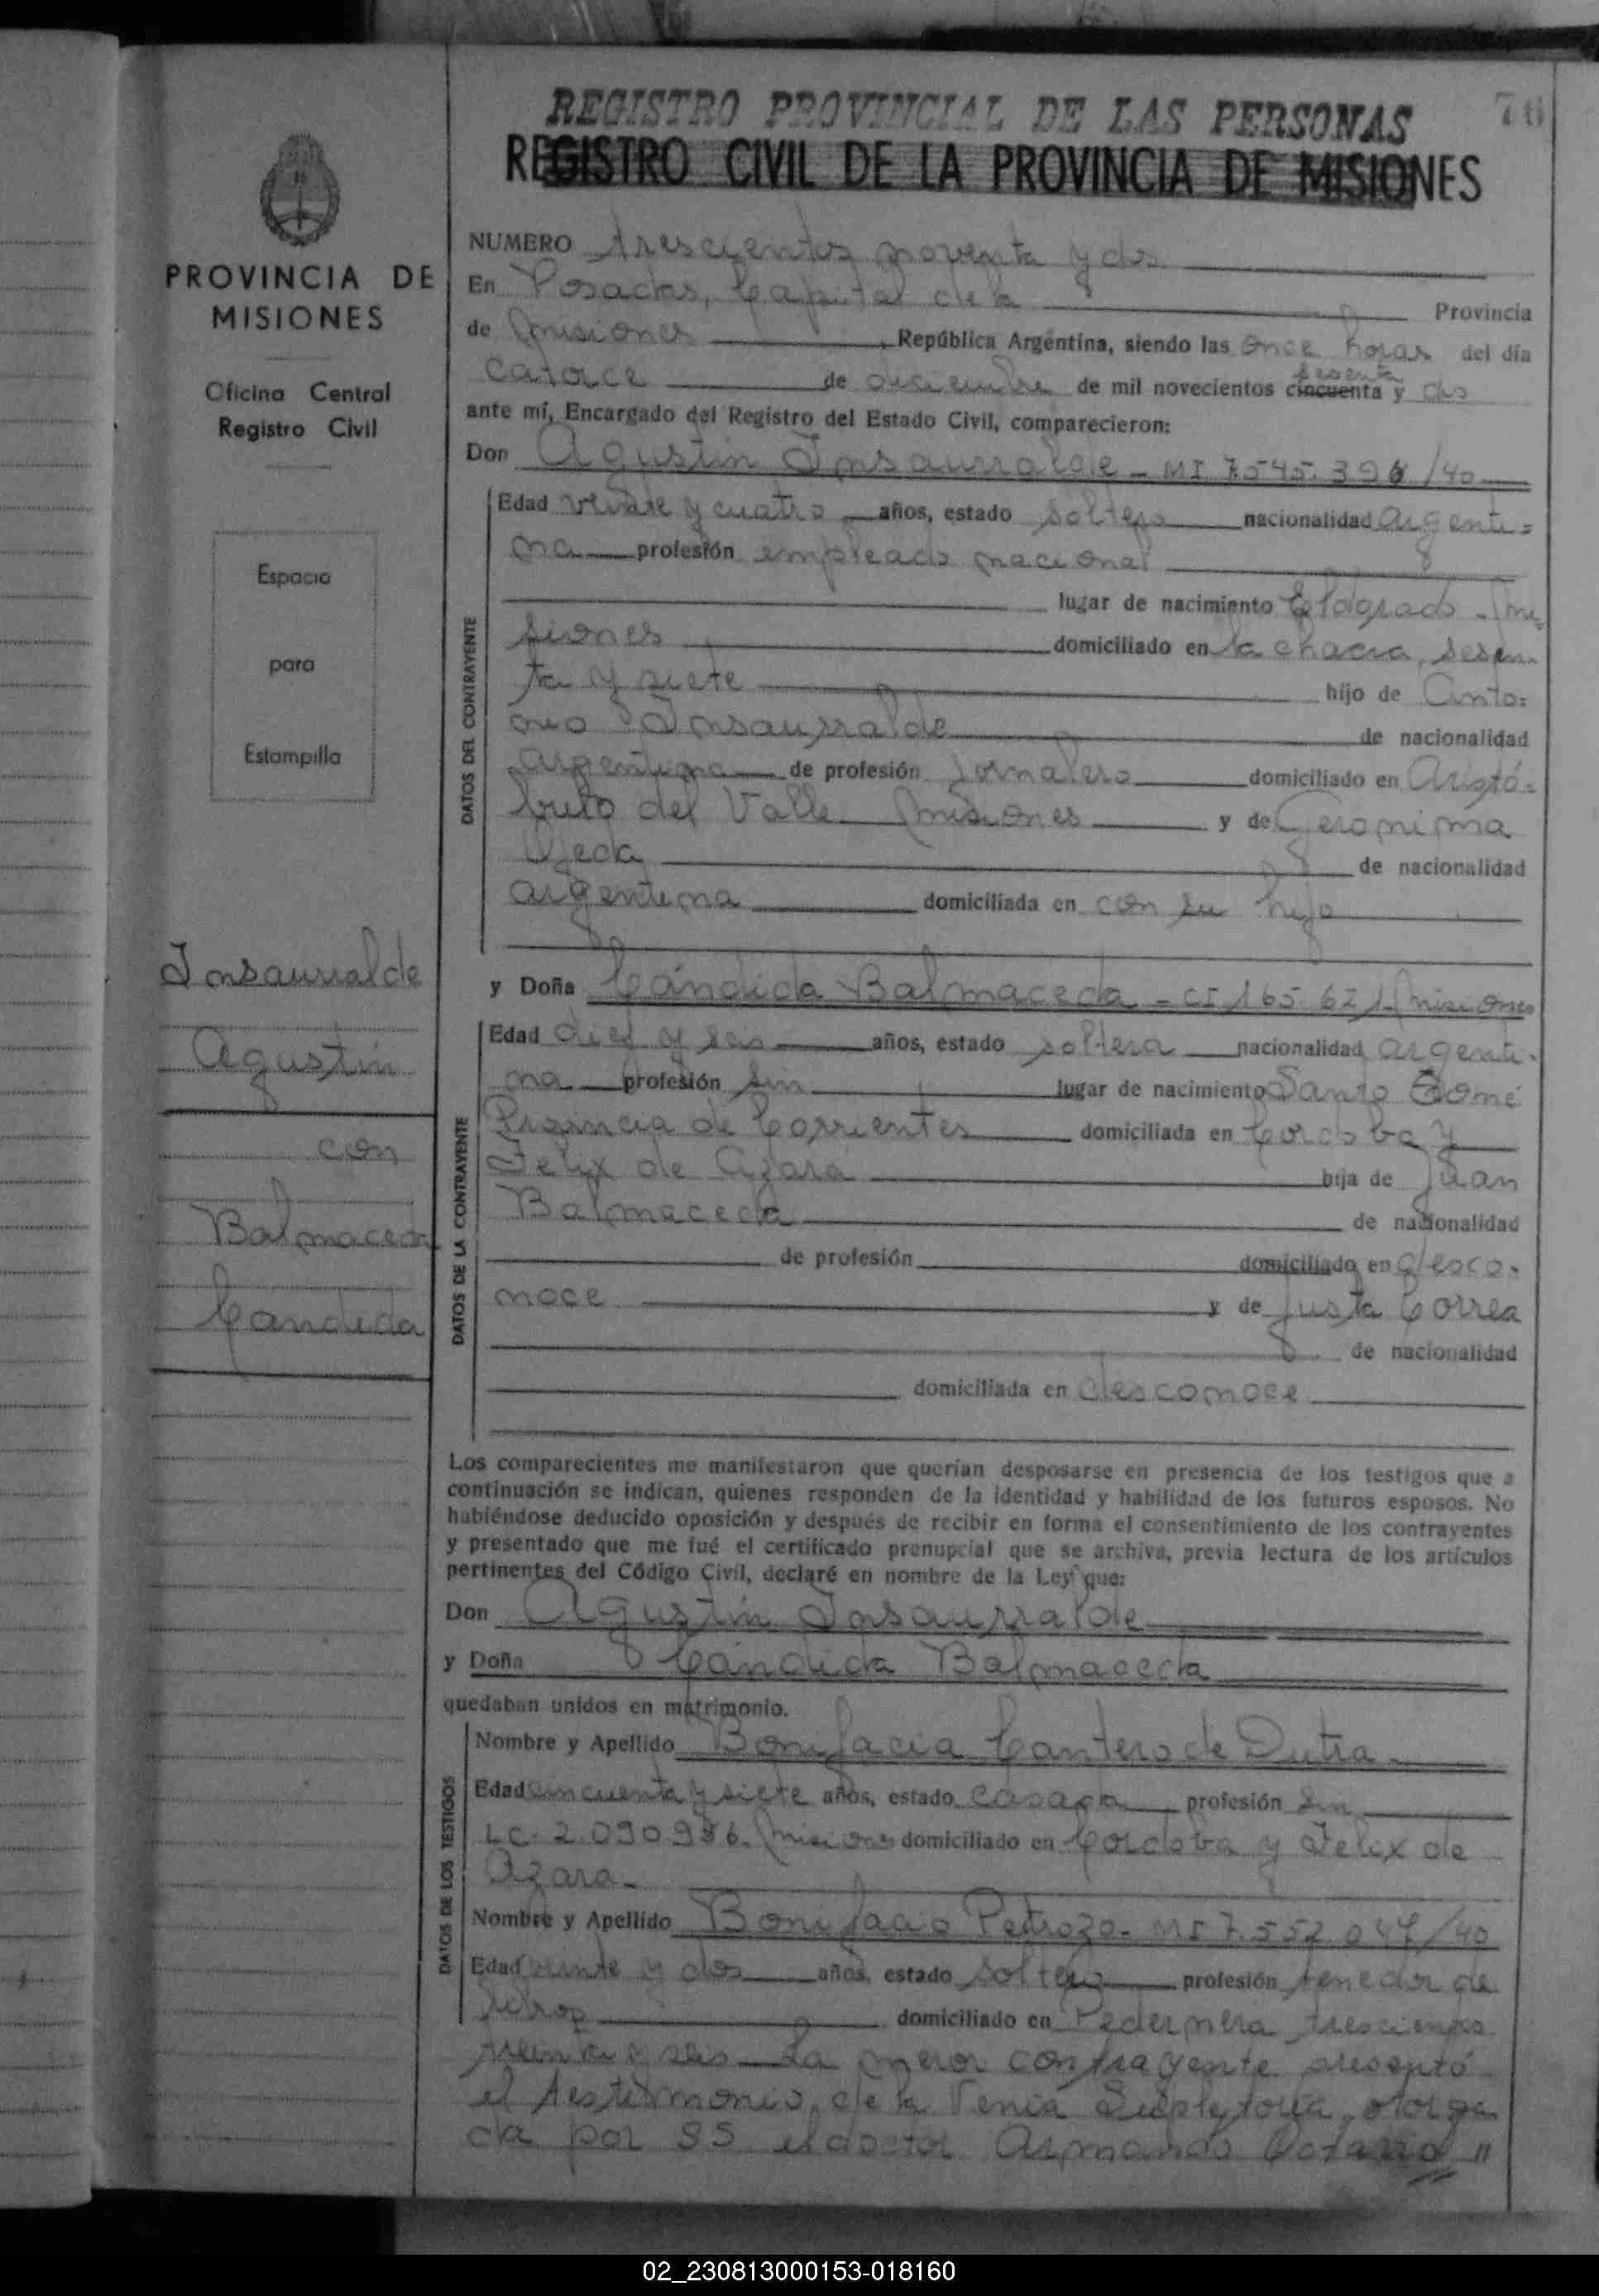 REGISTRO PROVINCIAL DE LAS PERSONAS
REGISTRO CIVIL DE LA PROVINCIA DE MISIONES
PROVINCIA DE
MISIONES
Oficina Central
Registro Civil
Espacio
para
Estampilla
Insaurralde
Agustín
con
Balmaceda
Candida
NUMERO trescientos noventa y dos
En Posadas, Capital de la Provincia
de Misiones, República Argentina, siendo las once horas del día
sesenta
catorce de diciembre de mil novecientos cincuenta y dos
ante mí, Encargado del Registro del Estado Civil, comparecieron:
Don Agustín Insaurralde - MI 7.545.396/40
DATOS DEL CONTRAYENTE
Edad veinte y cuatro años, estado soltero nacionalidad argenti=
na profesión empleado nacional
lugar de nacimiento Eldorado - Mi=
siones domiciliado en la chacra, sesen
ta y siete hijo de Anto=
nio Insaurralde de nacionalidad
argentina de profesión jornalero domiciliado en Aristó=
bulo del Valle Misiones y de Geronima
Ojeda de nacionalidad
argentina domiciliada en con su hijo
y Doña Cándida Balmaceda - CI 165.621- Misiones
DATOS DE LA CONTRAYENTE
Edad diez y seis años, estado soltera nacionalidad argenti-
na profesión sin lugar de nacimiento Santo Tomé
Provincia de Corrientes domiciliada en Cordoba y
Felix de Azara hija de Juan
Balmaceda de nacionalidad
de profesión domiciliado en desco-
noce y de Justa Correa
de nacionalidad
domiciliada en desconoce
Los comparecientes me manifestaron que querían desposarse en presencia de los testigos que a
continuación se indican, quienes responden de la identidad y habilidad de los futuros esposos. No
habiéndose deducido oposición y después de recibir en forma el consentimiento de los contrayentes
y presentado que me fué el certificado prenupcial que se archiva, previa lectura de los artículos
pertinentes del Código Civil, declaré en nombre de la Ley que:
Don Agustín Insaurralde
y Doña Cándida Balmaceda
quedaban unidos en matrimonio.
DATOS DE LOS TESTIGOS
Nombre y Apellido Bonifacia Cantero de Dutra
Edad cincuenta y siete años, estado casada profesión sin
LC. 2.090.986. Misiones domiciliado en Cordoba y Felix de
Azara-
Nombre y Apellido Bonifacio Petrozo- MI 7.552.047/40
Edad veinte y dos años, estado soltero profesión tenedor de
libros domiciliado en Pedernera trescientos
treinta y seis La menor contrayente presentó
el testimonio de la Venia Supletoria otorga
da por SS el doctor Armando Octavio "
02_230813000153-018160